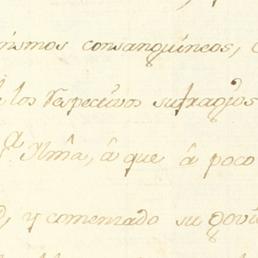 mismos consanguineos,
los respectivos sufragios
Ylma, â que â poco
y comenzado su